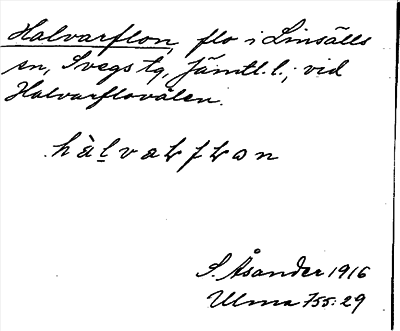 Halvarflon, flo i Linsälls
sn, Svegs tg, Jämtl. l.; vid
Halvarflovålen.
S. Åsander 1916
Ulma 755:29